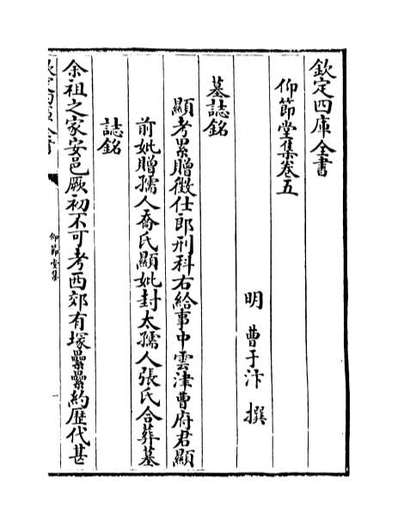 欽定四庫全書
仰節堂集卷五
明 曹于汴 撰
墓誌銘
顯考累贈徵仕郎刑科右給事中雲津曹府君顯
前妣贈孺人喬氏顯妣封太孺人張氏合葬墓
誌銘
余祖之家安邑厥初不可考西郊有塚纍纍約歴代甚
仰節堂集